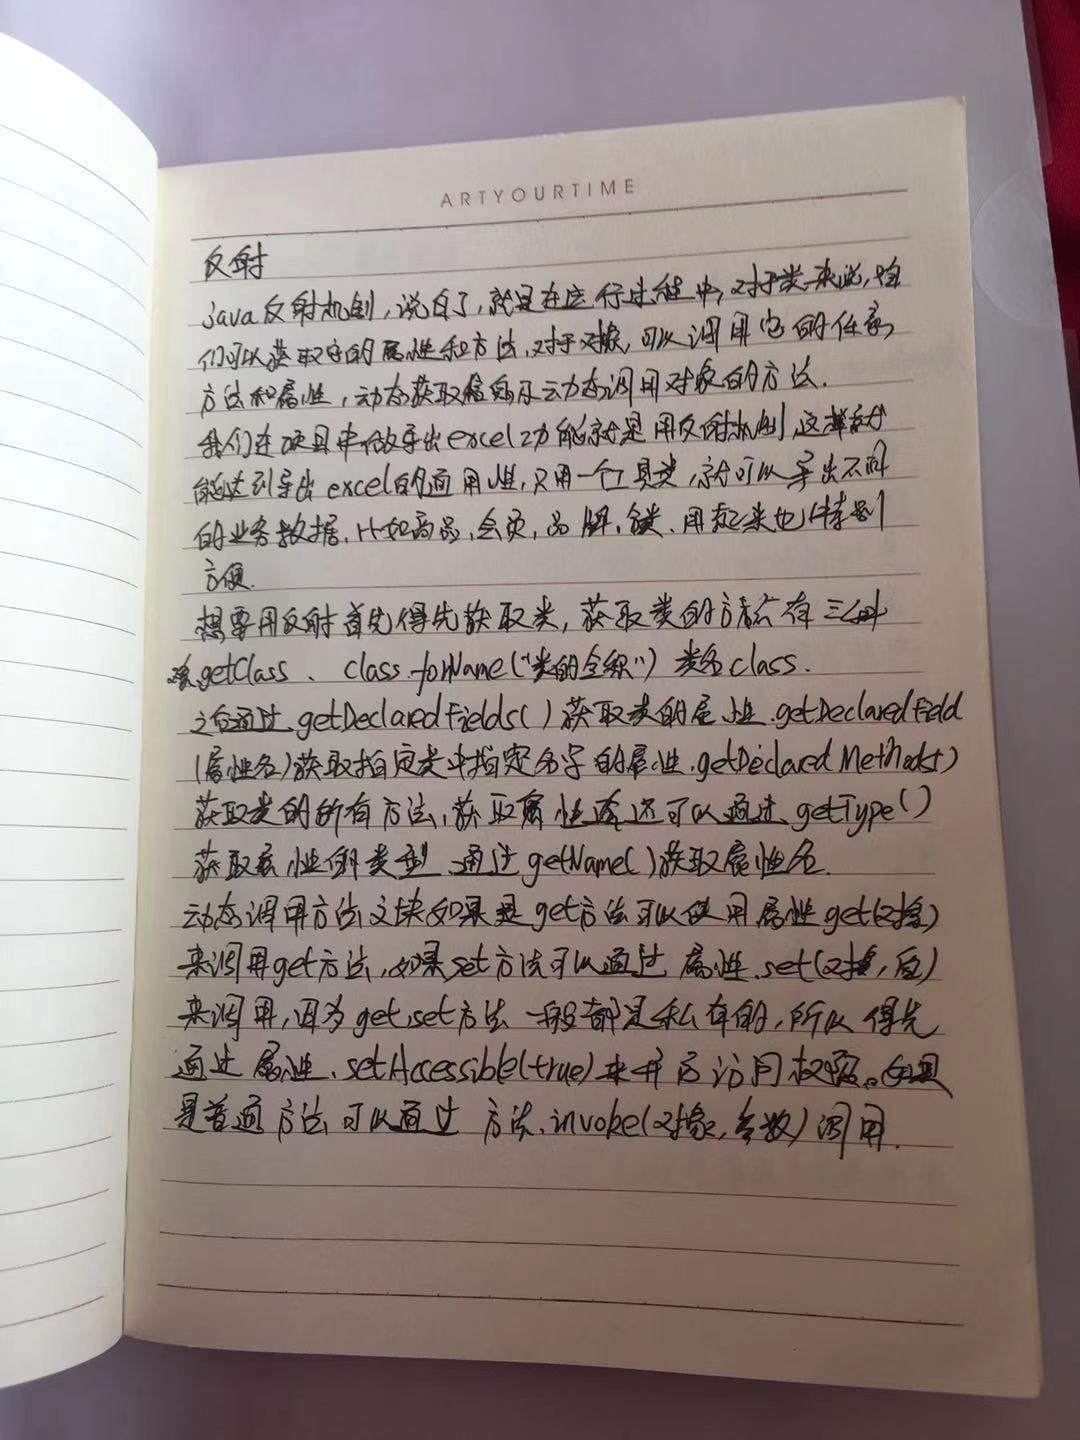 ARTYOURTIME
反射
java反射机制,说白了,就是在运行过程中,对于类来说,咱
们可以获取它的属性和方法,对于对象,可以调用它的任意
方法和属性,动态获取信息及动态调用对象的方法.
我们在项目中做导出excel功能就是用反射机制,这样就
能达到导出excel的通用性,只用一个工具类,就可以导出不同
的业务数据,比如商品,会员,品牌,分类.用起来也特别
方便.
想要用反射首先得先获取类,获取类的方法有三种
.getClass、class.forName("类的全称") 类名class.
之后通过.getDeclaredFields()获取类的属性.getDeclaredField
(属性名)获取指定类中指定名字的属性.getDeclaredMethods()
获取类的所有方法,获取属性还可以通过.getType()
获取属性的类型.通过getName()获取属性名.
动态调用方法这块如果是get方法可以使用属性get(对象)
来调用get方法,如果set方法可以通过属性.set(对象,值)
来调用,因为get,set方法一般都是私有的,所以得先
通过属性.setAccessible(true)来开启访问权限。如果
是普通方法可以通过方法.invoke(对象,参数)调用.